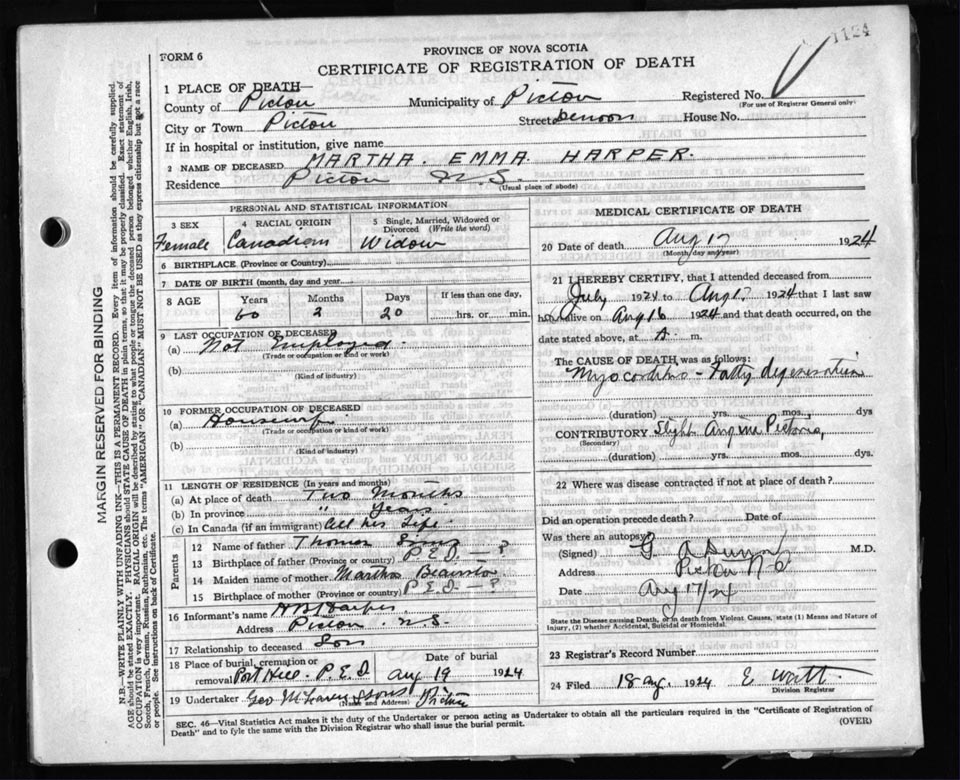 1124
FORM 6
PROVINCE OF NOVA SCOTIA
CERTIFICATE OF REGISTRATION OF DEATH
1 PLACE OF DEATH—
County of Pictou Municipality of Pictou Registered No.
(For use of Registrar General only)
City or Town Pictou Street Denoon House No.
If in hospital or institution, give name
2 NAME OF DECEASED MARTHA. EMMA. HARPER.
Residence Pictou N.S.
(Usual place of abode)
PERSONAL AND STATISTICAL INFORMATION
3 SEX 4 RACIAL ORIGIN 5 Single, Married, Widowed or Divorced (Write the word)
Female Canadian Widow
6 BIRTHPLACE (Province or Country)
7 DATE OF BIRTH (month, day and year)
8 AGE Years Months Days If less than one day,
60 2 20 hrs. or min.
9 LAST OCCUPATION OF DECEASED
(a) Not Employed.
(Trade or occupation or kind of work)
(b)
(Kind of industry)
10 FORMER OCCUPATION OF DECEASED
(a) Housewife
(Trade or occupation or kind of work)
(b)
(Kind of industry)
11 LENGTH OF RESIDENCE (In years and months)
(a) At place of death Two Months
(b) In province " Years
(c) In Canada (if an immigrant) All his Life.
Parents
12 Name of father Thomas
13 Birthplace of father (Province or country) P.E.I. — ?
14 Maiden name of mother Martha
15 Birthplace of mother (Province or country) P.E.I. — ?
16 Informant's name Harper
Address Pictou. N.S.
17 Relationship to deceased Son
18 Place of burial, cremation or removal Port Hill. P.E.I Date of burial Aug 19 1924
19 Undertaker Geo McLaren & Sons Pictou
(Name and Address)
MEDICAL CERTIFICATE OF DEATH
20 Date of death Aug 17 1924
(Month, day and year)
21 I HEREBY CERTIFY, that I attended deceased from
July 1924 to Aug 17 1924 that I last saw
h alive on Aug 16 1924 and that death occurred, on
date stated above, at A. m.
The CAUSE OF DEATH was as follows:
Myocarditis - Fatty degeneration
(duration) yrs. mos. dys
CONTRIBUTORY Slight Angina Pectoris,
(Secondary)
(duration) yrs. mos. dys.
22 Where was disease contracted if not at place of death?
Did an operation precede death? Date of
Was there an autopsy?
(Signed) M.D.
Address Pictou N.S.
Date Aug 17/24
State the Disease causing Death, or in death from Violent Causes, state (1) Means and Nature of Injury, (2) whether Accidental, Suicidal or Homicidal.
23 Registrar's Record Number
24 Filed 18 Aug. 1924 E. Watt
Division Registrar
SEC. 46—Vital Statistics Act makes it the duty of the Undertaker or person acting as Undertaker to obtain all the particulars required in the "Certificate of Registration of
Death" and to fyle the same with the Division Registrar who shall issue the burial permit. (OVER)
MARGIN RESERVED FOR BINDING
N.B.—WRITE PLAINLY WITH UNFADING INK—THIS IS A PERMANENT RECORD. Every item of information should be carefully supplied.
AGE should be stated EXACTLY. PHYSICIANS should STATE CAUSE OF DEATH in plain terms, so that it may be properly classified. Exact statement of
OCCUPATION is very important. RACIAL ORIGIN will be described by stating to what people or tongue the deceased person belonged whether English, Irish,
Scotch, French, German, Russian, Ruthenian, etc. The terms "AMERICAN" or "CANADIAN" MUST NOT BE USED as they express citizenship but not a race
or people. See instructions on back of Certificate.